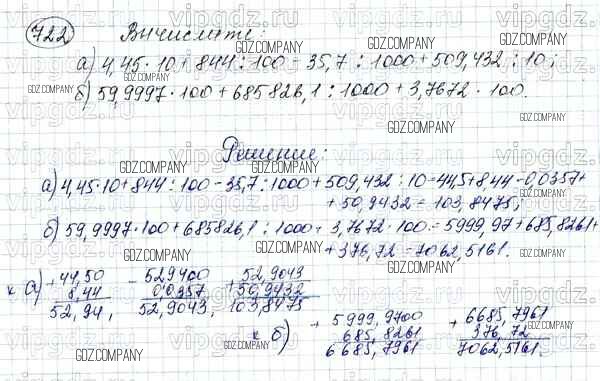 722 Вычислите:
а) 4,45·10+844:100-35,7:1000+509,432:10;
б) 59,9997·100+685826,1:1000+3,7672·100.
Решение:
а) 4,45·10+844:100-35,7:1000+509,432:10=44,5+8,44-0,0357+
+50,9432=103,8475;
б) 59,9997·100+685826,1:1000+3,7672·100=5999,97+685,8261+
+376,72=7062,5161.
к а) +44,50 -52,9400 +52,9043
8,44 0,0357 50,9432
52,94, 52,9043, 103,8475
к б) +5999,9700 +6685,7961
685,8261 376,72
6685,7961 7062,5161.